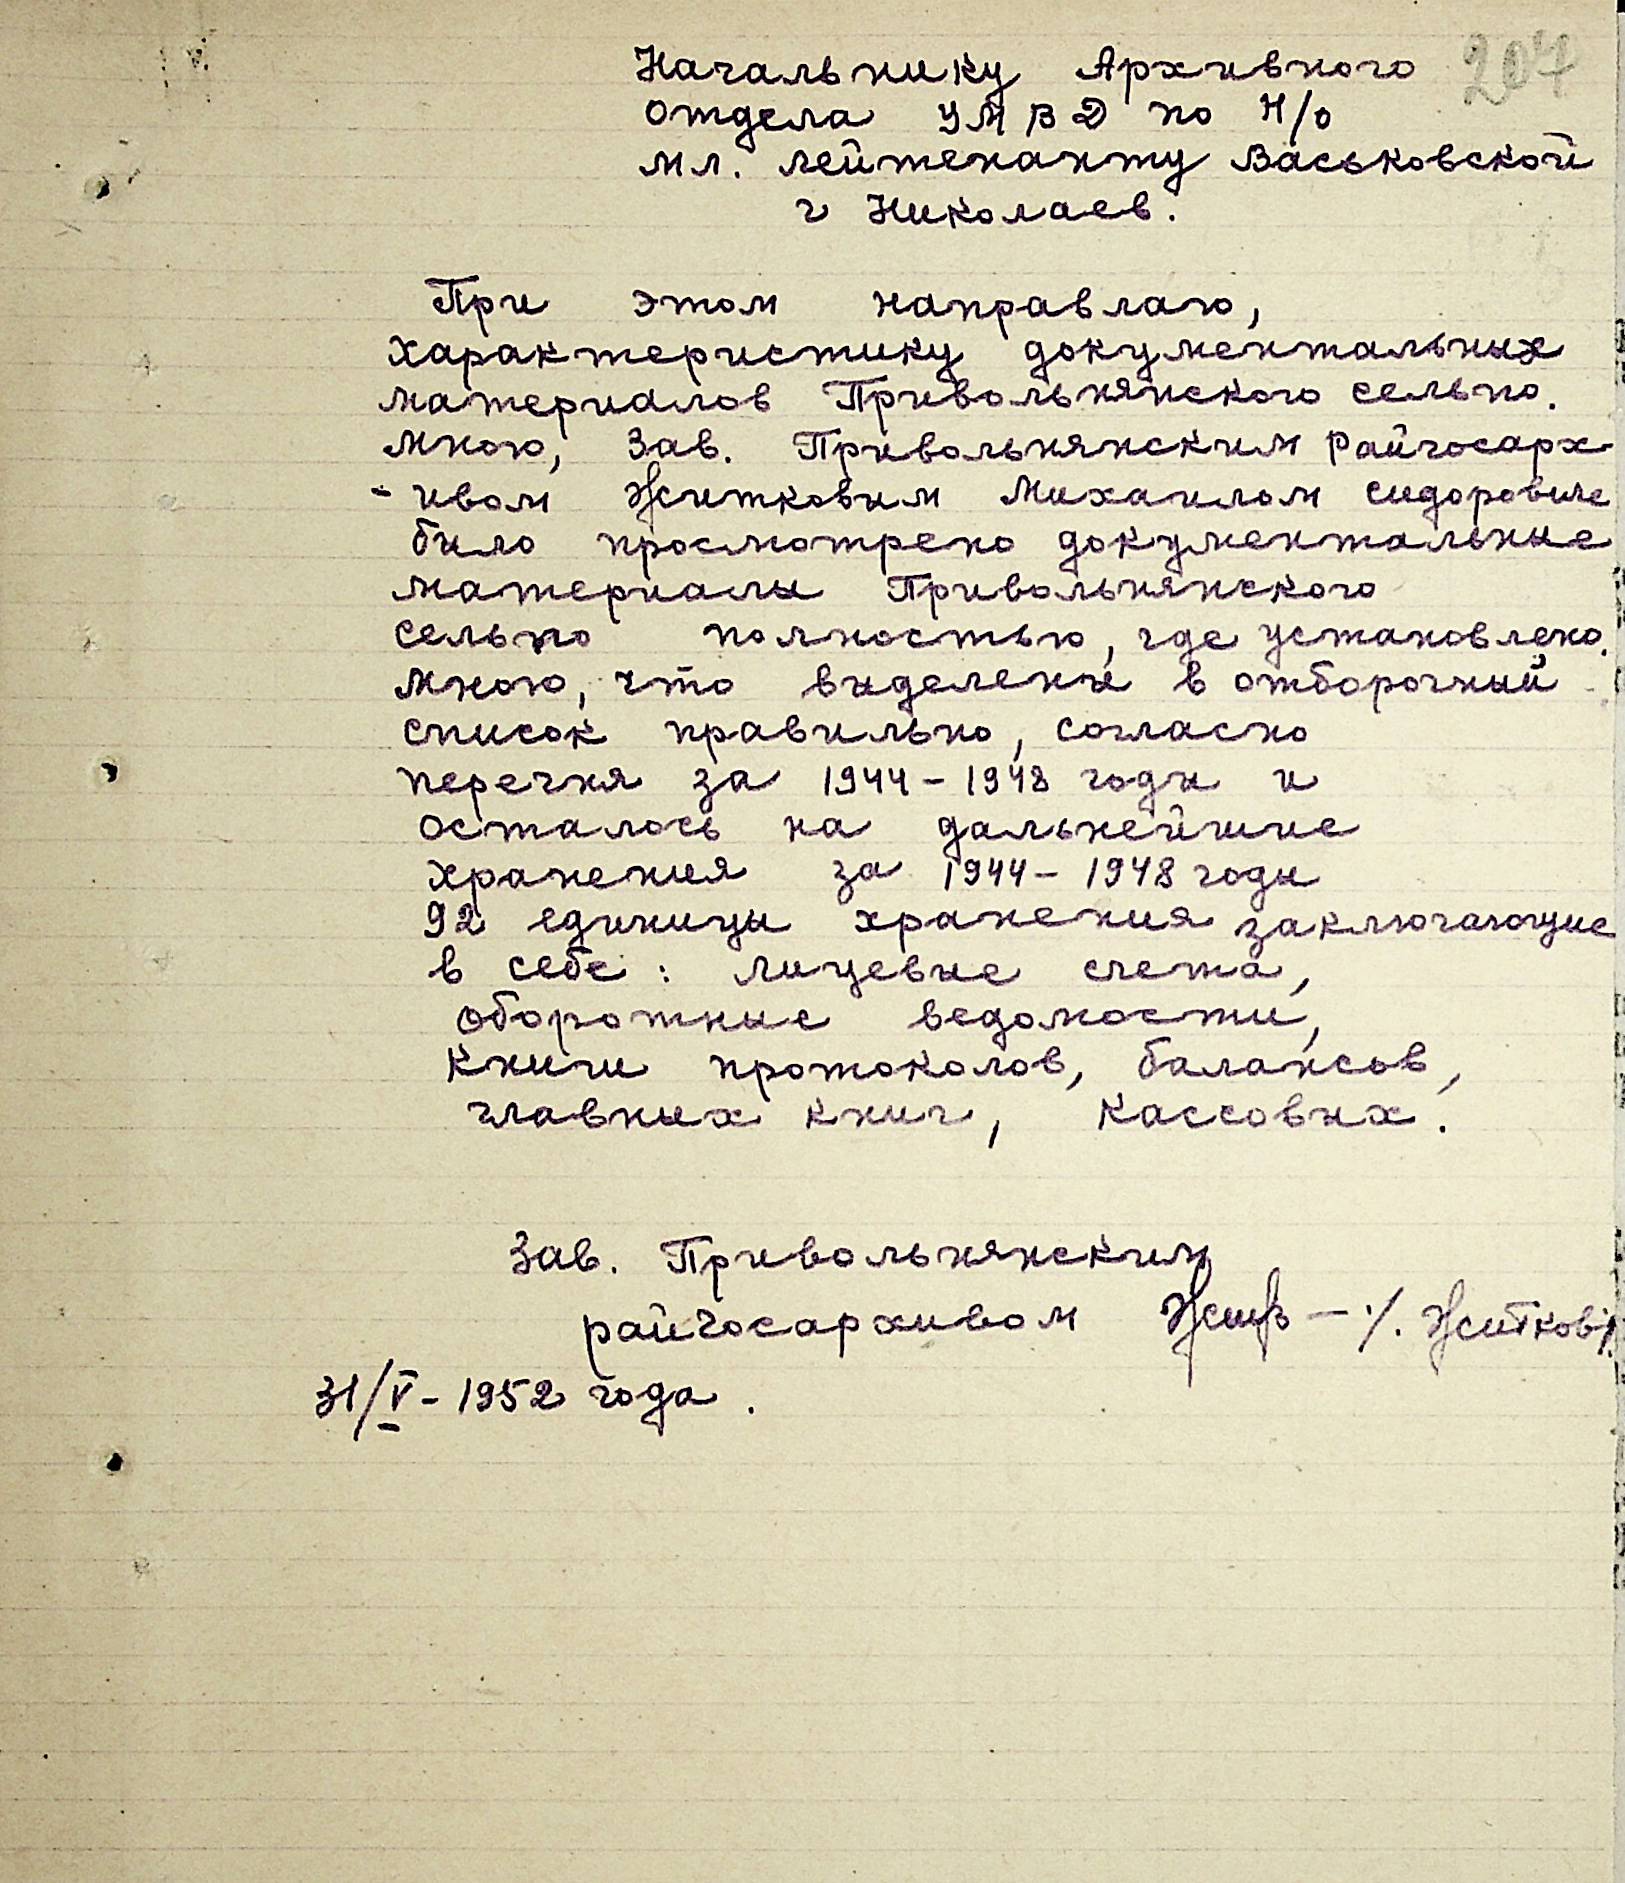 207
Начальнику Архивного
отдела УМВД по Н/о
мл. лейтенанту Васьковской
г Николаев.
При этом направлаю,
характеристику документальных
материалов Привольнянского сельпо.
Мною, Зав. Привольнянским Райгосарх-
-ивом Житковым Михаилом Сидоровиче
было просмотрено документальные
материалы Привольнянского
сельпо полностью, где установлено.
Мною, что выделены в отборочный
список правильно, согласно
перечня за 1944-1948 годы и
осталось на дальнейшие
хранения за 1944-1948 годы
92 единицы хранения заключающие
в себе: лицевые счета,
оборотные ведомости,
Книги протоколов, балансов,
главных книг, Кассовых.
Зав. Привольнянским
райгосархивом /. Житков/.
31/V-1952 года.